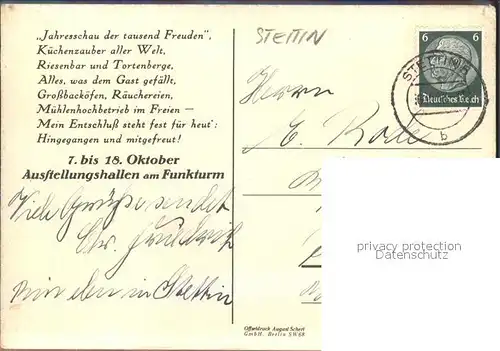 „Jahresschau der tausend Freuden“,
Küchenzauber aller Welt,
Riesenbar und Tortenberge,
Alles, was dem Gast gefällt,
Großbacköfen, Räuchereien,
Mühlenhochbetrieb im Freien —
Mein Entschluß steht fest für heut':
Hingegangen und mitgefreut!
7. bis 18. Oktober
Ausstellungshallen am Funkturm
Viele Grüße sendet
Friedrich
in Stettin
STETTIN
Herrn
E. Rode
6 6
Deutsches Reich
STETTIN
b
Offsetdruck August Scherl
GmbH. Berlin SW 68
privacy protection
WATERMARK